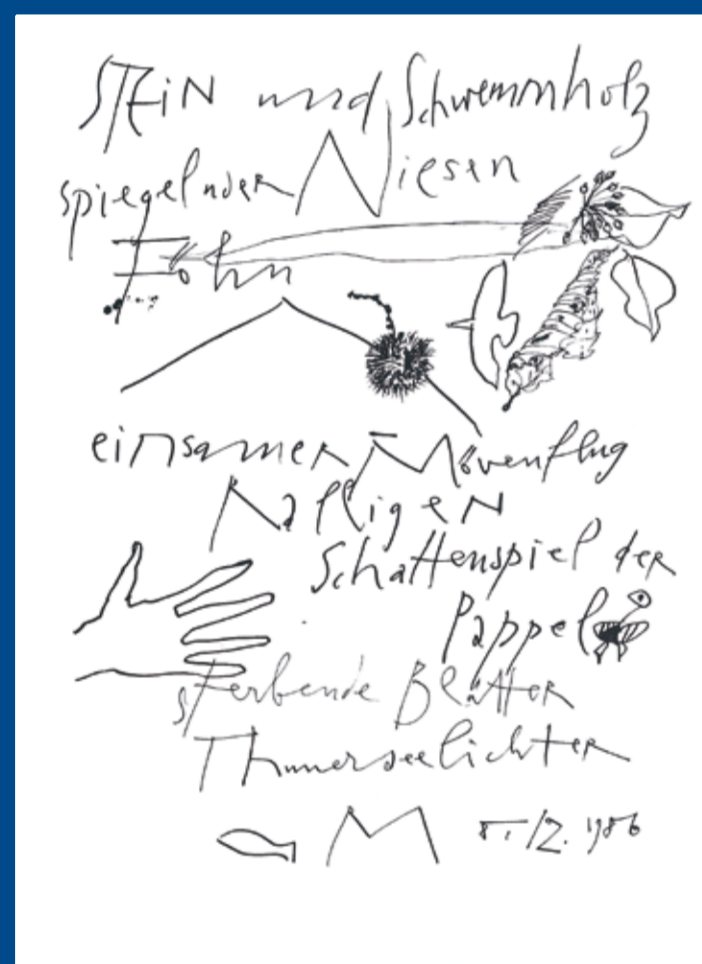 STEiN und Schwemmholz
spiegelnder Niesen
Föhn
einsamer Mövenflug
Ralligen
Schattenspiel der
Pappel
sterbende Blätter
Thunerseelichter
M 8. 12. 1986